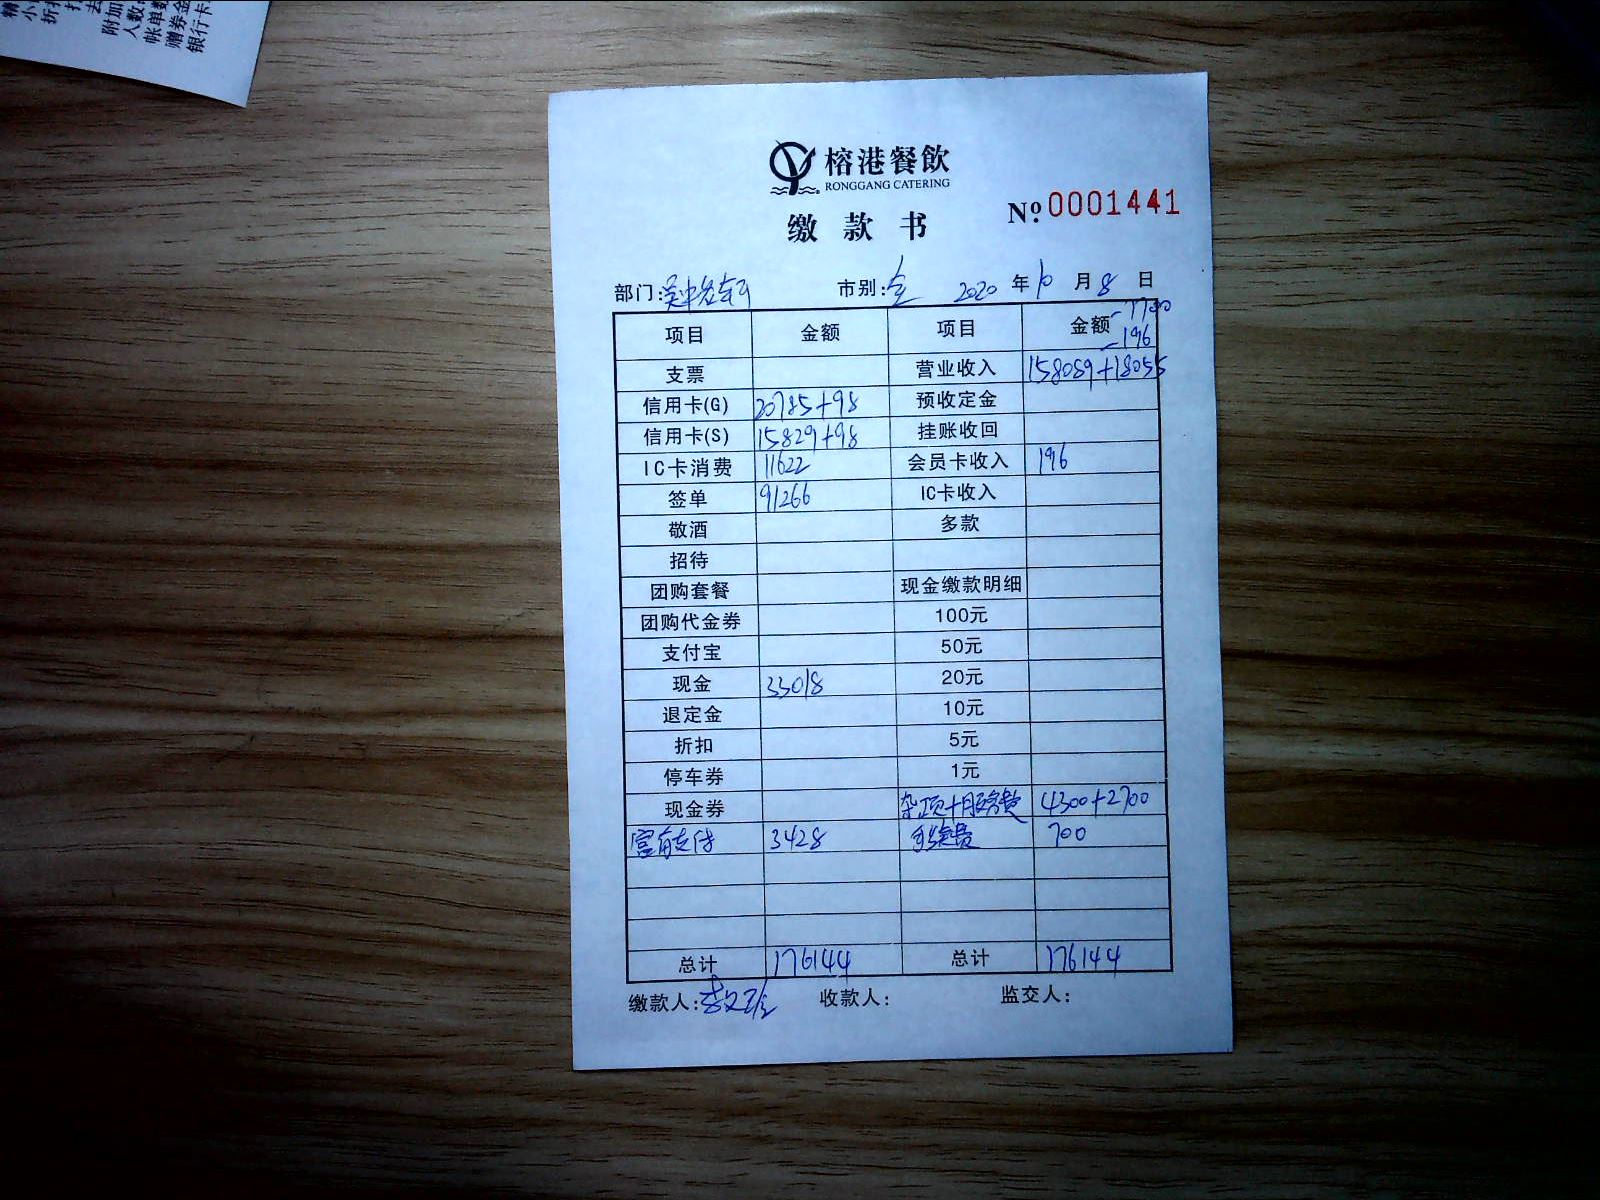 附加
人数
帐单数
赠券金
银行卡
榕港餐飲
RONGGANG CATERING
缴款书
№ 0001441
部门: 市别:全 2020年10月8日
项目 金额 项目 金额 -7700
-196
支票 营业收入 158089+18055
信用卡(G) 20785+98 预收定金
信用卡(S) 15829+98 挂账收回
IC卡消费 11622 会员卡收入 196
签单 91266 IC卡收入
敬酒 多款
招待
团购套餐 现金缴款明细
团购代金券 100元
支付宝 50元
现金 33018 20元
退定金 10元
折扣 5元
停车券 1元
现金券 杂项+服务费 4300+2700
富有支付 3428 手续费 700
总计 176144 总计 176144
缴款人: 收款人: 监交人: